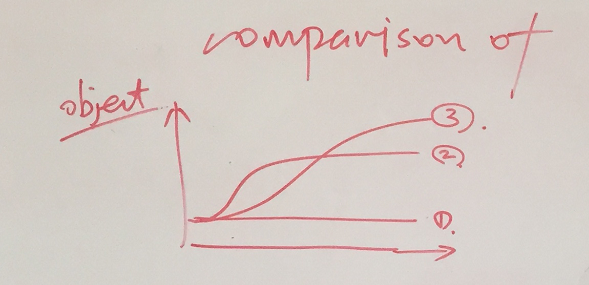 comparison of
object
③.
②
①.